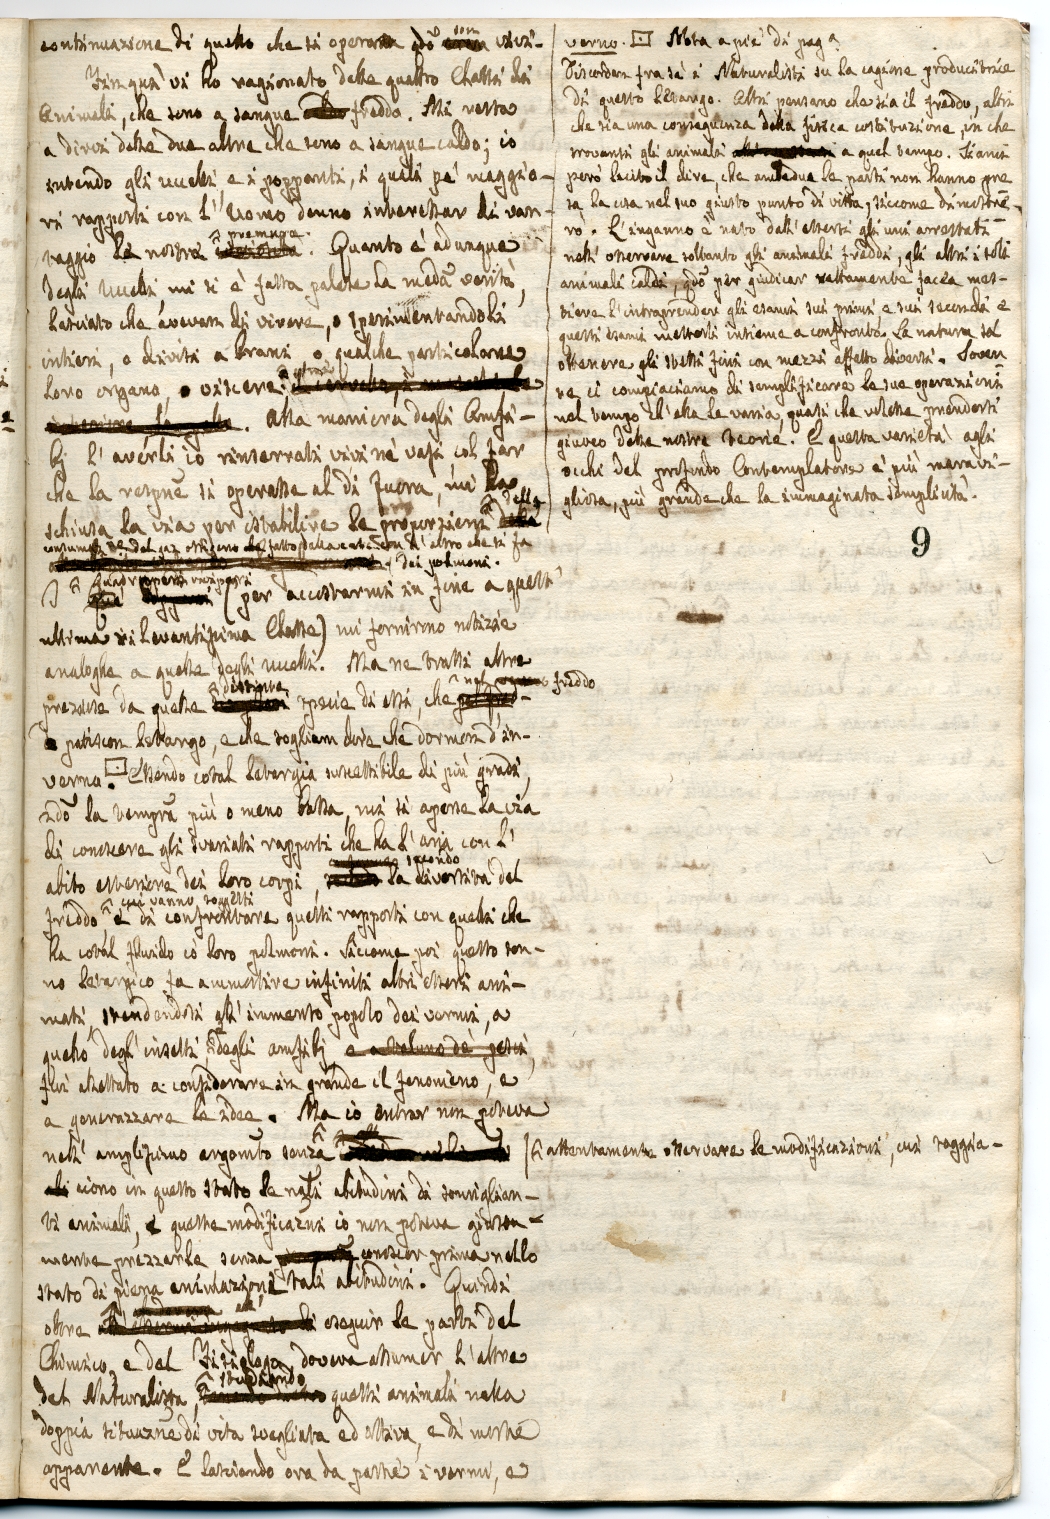 continuazione di quello che si operava qdo eran vivi-
Fin quà vi ho ragionato delle quattro Classi di
Animali, che sono a sangue freddo. Mi resta
a dirvi delle due altre che sono a sangue caldo; io
intendo gli uccelli, e i poppanti, i quali pe' maggio-
ri rapporti con l'Uomo denno interessar di van-
taggio le nostre premure. Quanto è adunque
degli Uccelli, mi si è fatta palese la medā verità,
lasciato che avevan di vivere, o sperimentandoli
intieri, o divisi a brani o qualche particolare
loro organo, o viscere
. Alla maniera degli Amfi-
bj l'averli io rinserrati vivi ne' vasi col far
che la respnē si operasse al di fuora, mi ha
schiusa la via per istabilire le proporzioni della
consumazne del gaz ossigeno che fatto dalla cute con l'altro che si fa
dai polmoni.
I Quadrupedi vivipari (per accostarmi in fine a questa
ultima rilevantissima Classe) mi fornirono notizie
analoghe a quelle degli uccelli. Ma ne trassi altre
preziose da quelle distinte specie di essi, che nel freddo
patiscon letargo, e che sogliam dire che dormon d'in-
verno. Essendo cotal letargia suscettibile di più gradi,
2dō la temprā più o meno bassa, mi si aperse la via
di conoscere gli svariati rapporti che ha l'aria con l'
abito esteriore dei loro corpi, secondo la diversità del
freddo cui vanno soggetti, e di confrontare questi rapporti con quelli che
ha cotal fluido co' loro polmoni. Siccome poi questo son-
no letargico fa ammortire infiniti altri esseri ani-
mati, stendendosi all'immenso popolo dei vermi, a
quello degl'insetti, degli amfibj e a taluno de' pesci,
fui allettato a considerare in grande il fenomeno, e
a generizzare le idee. Ma io entrar non poteva
nell'amplissimo argomto senza
ciono in questo stato le nati abitudini di somiglian-
ti animali, e queste modificazni io non poteva giusta-
mente prezzarle senza conoscer prima nello
stato di piena animazione tali abitudini. Quindi
oltre eseguir le parti del
Chimico, e del Fisiologo, doveva assumer l'altre
del Naturalista, studiando questi animali nella
doppia situazne di vita svegliata ed attiva, e di morte
apparente. E lasciando ora da parte i vermi, e
verno. Nota a piè di pag.
Discordan fra sè i Naturalisti su la cagione producitrice
di questo letargo. Altri pensano che sia il freddo, altri
che sia una conseguenza della fisica costituzione, in che
trovansi gli animali a quel tempo. Siami
però lecito il dire, che amedue le parti non hanno pre
sa la cosa nel suo giusto punto di vista, siccome dimostre-
rò. L'inganno è nato dall'essersi gli uni arrestati
nell'osservare soltanto gli animali freddi, gli altri i soli
animali caldi, qdo per giudicar rettamente facea mes-
tiere l'intraprendere gli esami sui primi e sui secondi e
questi esami metterli insieme a confronto. La natura sa
ottenere gli stessi fini con mezzi affatto diversi. Soven
te ci compiacciamo di semplificare le sue operazioni
nel tempo ch'ella le varia, quasi che volesse prendersi
giuoco delle nostre teorie. E questa varietà agli
occhi del profondo Contemplatore è più maravi-
gliosa, più grande che la immaginata semplicità.
9
attentamente osservare le modificazioni, cui soggia-